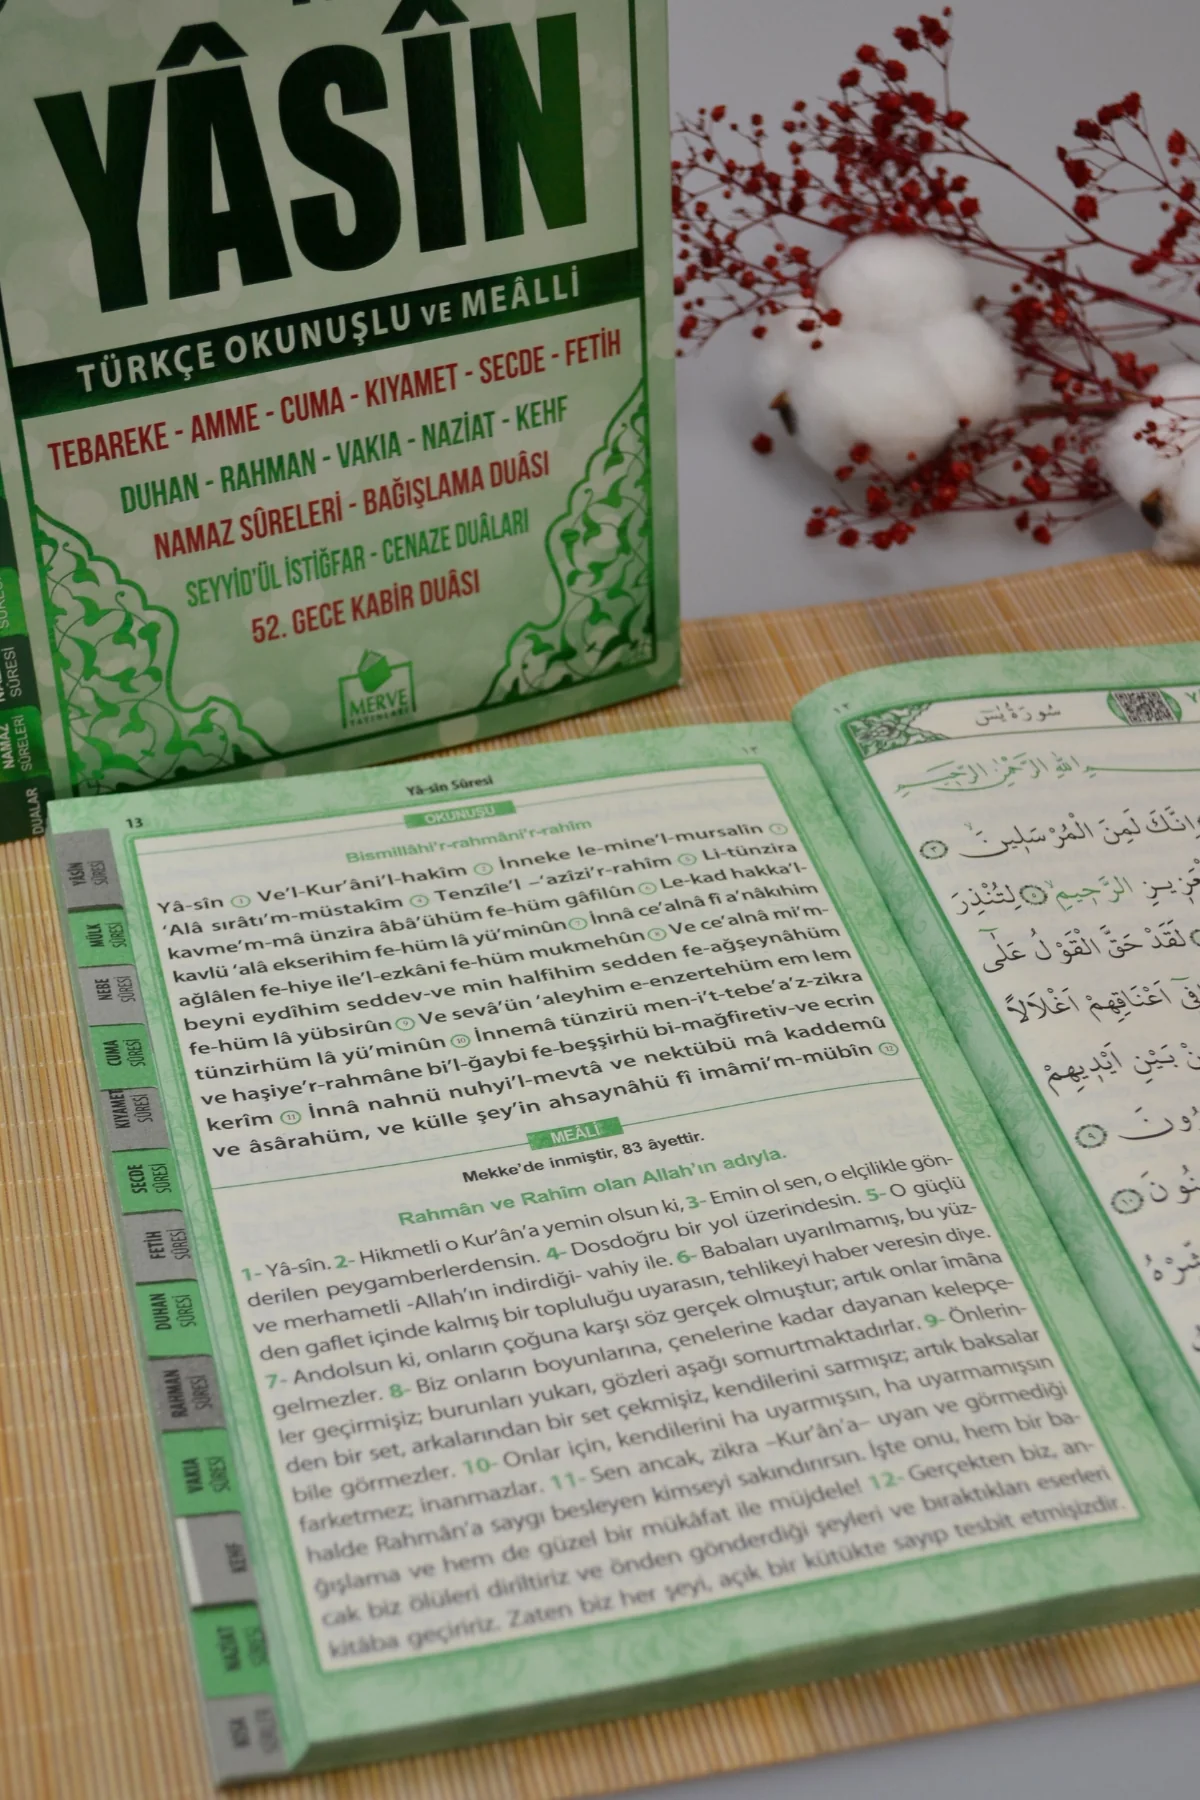 YÂSÎN
TÜRKÇE OKUNUŞLU VE MEÂLLİ
TEBAREKE - AMME - CUMA - KIYAMET - SECDE - FETİH
DUHAN - RAHMAN - VAKIA - NAZİAT - KEHF
NAMAZ SÛRELERİ - BAĞIŞLAMA DUÂSI
SEYYİD'ÜL İSTİĞFAR - CENAZE DUÂLARI
52. GECE KABİR DUÂSI
MERVE
YAYINLARI
SÛRESİ
NAMAZ
SÛRELERİ
DUALAR
13
Yâ-sîn Sûresi
OKUNUŞU
Bismillâhi'r-rahmâni'r-rahîm
Yâ-sîn ① Ve'l-Kur'âni'l-hakîm ② İnneke le-mine'l-mursalîn ③
'Alâ sırâtı'm-müstakîm ④ Tenzîle'l –'azîzi'r-rahîm ⑤ Li-tünzira
kavme'm-mâ ünzira âbâ'ühüm fe-hüm gâfilûn ⑥ Le-kad hakka'l-
kavlü 'alâ ekserihim fe-hüm lâ yü'minûn ⑦ İnnâ ce'alnâ fî a'nâkıhim
ağlâlen fe-hiye ile'l-ezkâni fe-hüm mukmehûn ⑧ Ve ce'alnâ mi'm-
beyni eydîhim seddev-ve min halfihim sedden fe-ağşeynâhüm
fe-hüm lâ yübsirûn ⑨ Ve sevâ'ün 'aleyhim e-enzertehüm em lem
tünzirhüm lâ yü'minûn ⑩ İnnemâ tünzirü men-i't-tebe'a'z-zikra
ve haşiye'r-rahmâne bi'l-ğaybi fe-beşşirhü bi-mağfiretiv-ve ecrin
kerîm ⑪ İnnâ nahnü nuhyi'l-mevtâ ve nektübü mâ kaddemû
ve âsârahüm, ve külle şey'in ahsaynâhü fî imâmi'm-mübîn ⑫
MEÂLİ
Mekke'de inmiştir, 83 âyettir.
Rahmân ve Rahîm olan Allah'ın adıyla.
1- Yâ-sîn. 2- Hikmetli o Kur'ân'a yemin olsun ki, 3- Emin ol sen, o elçilikle gön-
derilen peygamberlerdensin. 4- Dosdoğru bir yol üzerindesin. 5- O güçlü
ve merhametli -Allah'ın indirdiği- vahiy ile. 6- Babaları uyarılmamış, bu yüz-
den gaflet içinde kalmış bir topluluğu uyarasın, tehlikeyi haber veresin diye.
7- Andolsun ki, onların çoğuna karşı söz gerçek olmuştur; artık onlar îmâna
gelmezler. 8- Biz onların boyunlarına, çenelerine kadar dayanan kelepçe-
ler geçirmişiz; burunları yukarı, gözleri aşağı somurtmaktadırlar. 9- Önlerin-
den bir set, arkalarından bir set çekmişiz, kendilerini sarmışız; artık baksalar
bile görmezler. 10- Onlar için, kendilerini ha uyarmışsın, ha uyarmamışsın
farketmez; inanmazlar. 11- Sen ancak, zikra –Kur'ân'a– uyan ve görmediği
halde Rahmân'a saygı besleyen kimseyi sakındırırsın. İşte onu, hem bir ba-
ğışlama ve hem de güzel bir mükâfat ile müjdele! 12- Gerçekten biz, an-
cak biz ölüleri diriltiriz ve önden gönderdiği şeyleri ve bıraktıkları eserleri
kitâba geçiririz. Zaten biz her şeyi, açık bir kütükte sayıp tesbit etmişizdir.
YÂSÎN
SÛRESİ
MÜLK
SÛRESİ
NEBE
SÛRESİ
CUMA
SÛRESİ
KIYAMET
SÛRESİ
SECDE
SÛRESİ
FETİH
SÛRESİ
DUHAN
SÛRESİ
RAHMAN
SÛRESİ
VAKIA
SÛRESİ
KEHF
NAZİAT
SÛRESİ
KISA
١٢
سُورَةُ يٰسٓ
اللهِ الرَّحْمٰنِ الرَّحِيمِ
اِنَّكَ لَمِنَ الْمُرْسَلِينَ ٣
الرَّحِيمِ ٥ لِتُنْذِرَ
لَقَدْ حَقَّ الْقَوْلُ عَلٰٓى
فِىٓ اَعْنَاقِهِمْ اَغْلَالًا
بَيْنِ اَيْدِيهِمْ
٩
١٠